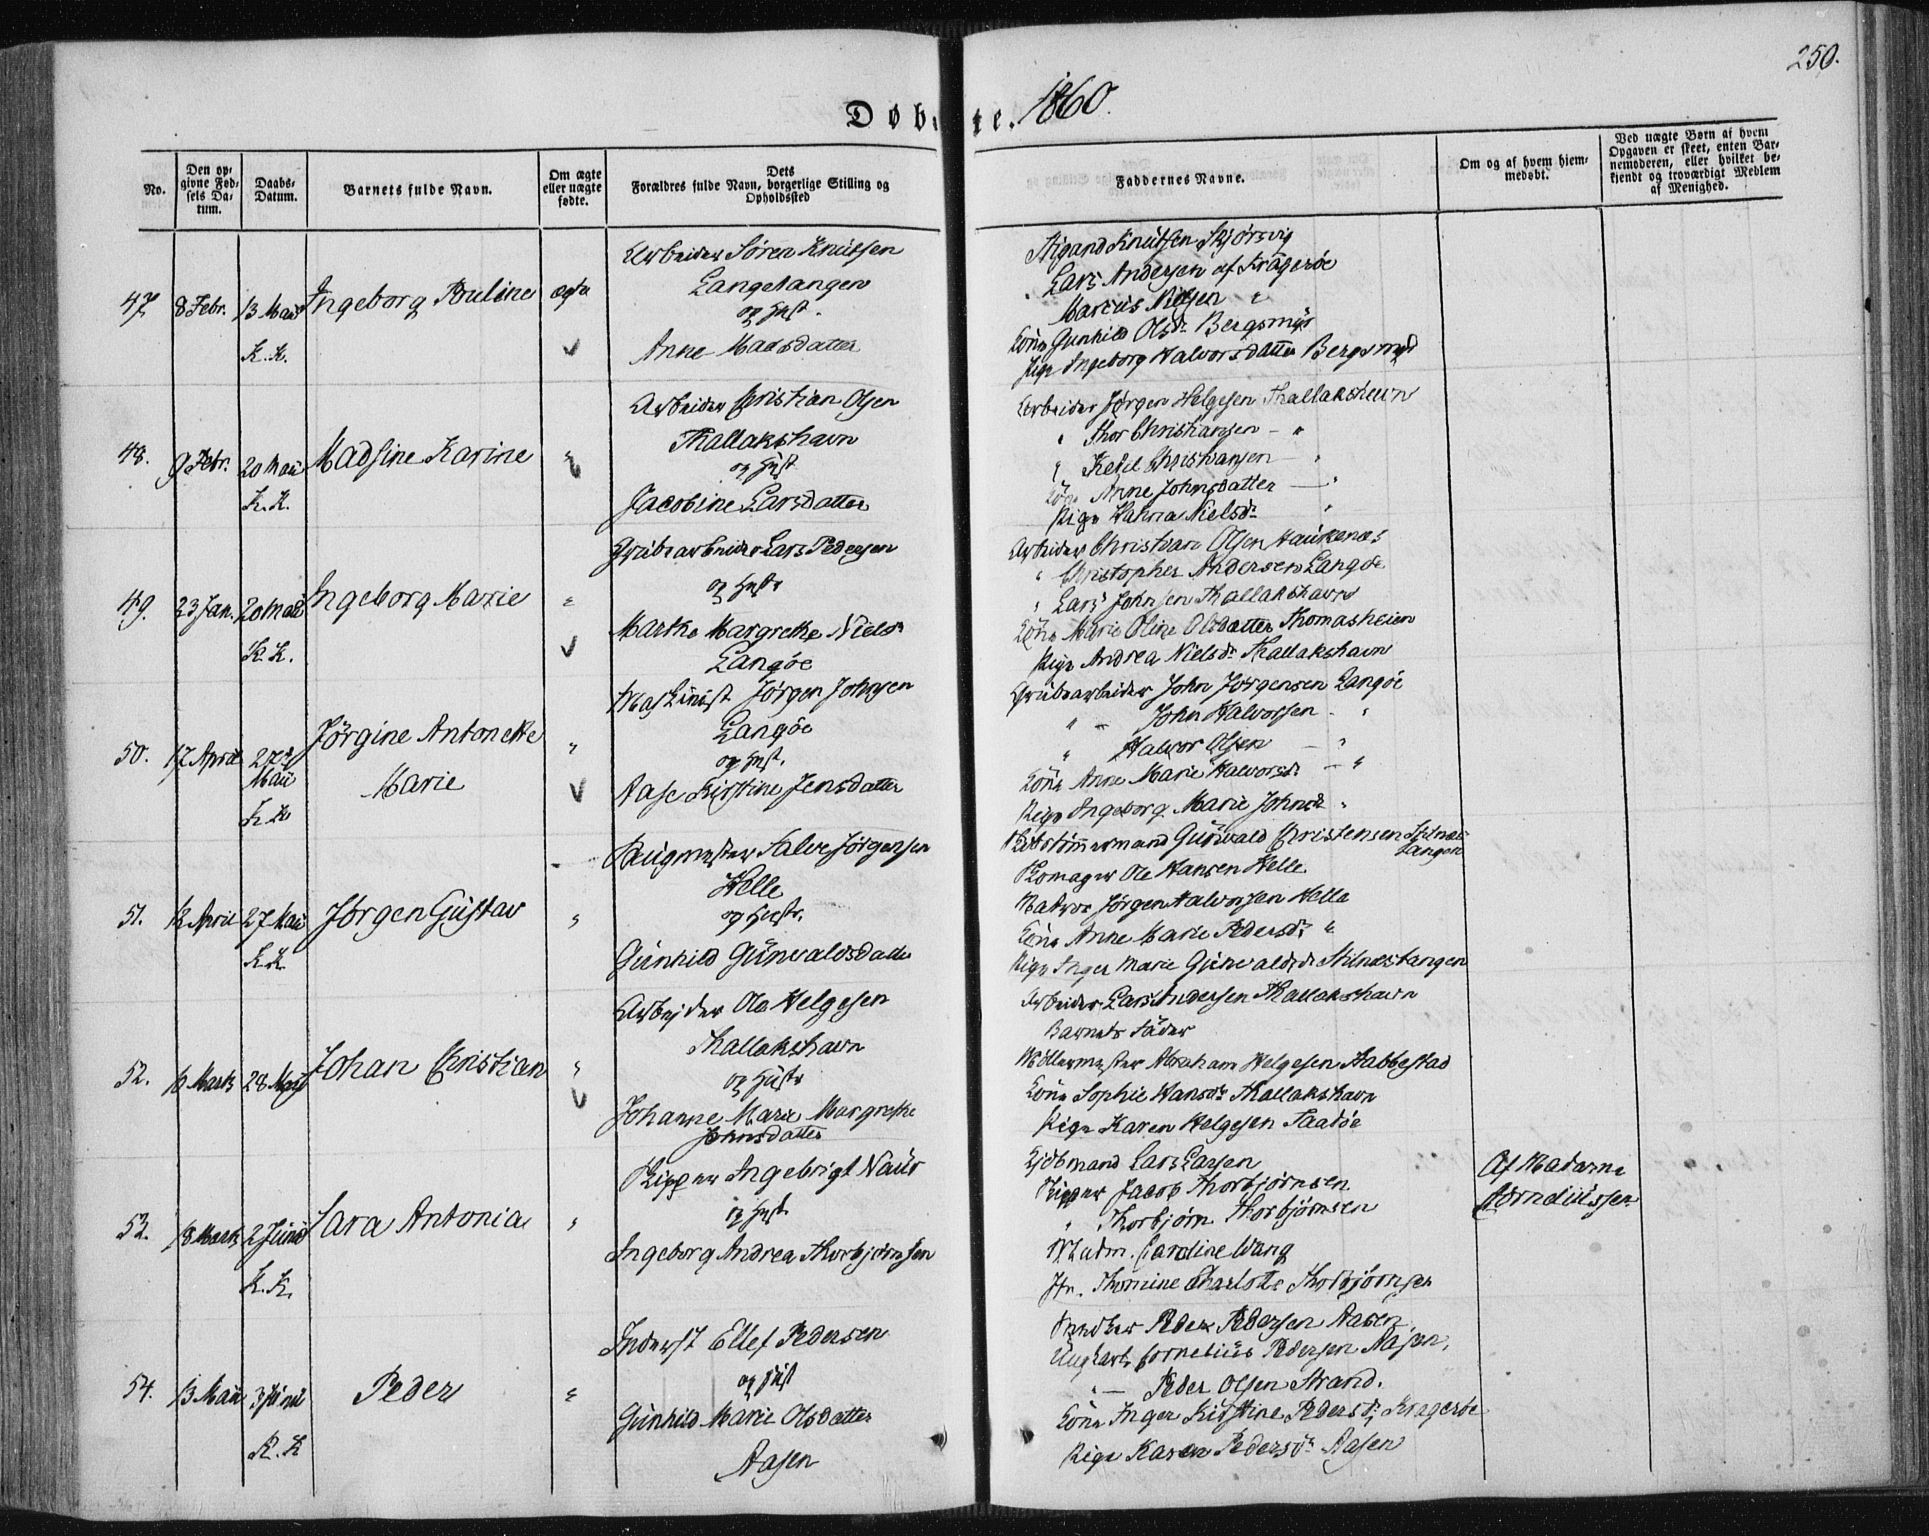 250.
Døbte. 1860.
No.
Den opgivne Fødsels Datum.
Daabs-Datum.
Barnets fulde Navn.
Om ægte eller uægte fødte.
Dets Forældres fulde Navn, borgerlige Stilling og Opholdssted
Faddernes Navne.
Om og af hvem hjemmedøbt.
Ved uægte Børn af hvem Opgaven er skeet, enten Barnemoderen, eller hvilket bekjendt og troværdigt Medlem af Menighed.
47. 8 Febr. 13 Mai K.K. Ingeborg Pouline ægte
Arbeider Søren Knutsen
Langetangen
og Hust.
Anne Madsdatter
Aigand Knutsen Skjørsvig
Lars Andersen af Kragerøe
Marcus Nilsen "
Kone Gunhild Olsdr Bergsmyr
Pige Ingeborg Halvorsdatter Bergsmyr
48. 9 Febr. 20 Mai K.K. Madsine Karine "
Arbeider Christian Olsen
Thallakshavn
og Hust
Jacobine Larsdatter
Arbeider Jørgen Helgesen Thallakshavn
" Thor Christiansen - "
" Ketil Christiansen - "
Kone Anne Johnsdatter - "
Pige Hanna Nielsdr "
49. 23 Jan. 20 Mai K.K. Ingeborg Marie "
Grubearbeider Lars Pedersen
og Hustr
Marthe Margrethe Nielsdr
Langøe
Arbeider Christian Olsen Haukenæs
" Christopher Andersen Langøe
" Lars Johnsen Thallakshavn
Kone Marie Oline Olsdatter Thomasheien
Pige Andrea Nielsdr Thallakshavn
50. 17 April 27de Mai K.K. Jørgine Antonette Marie "
Maskinist Jørgen Johnsen
Langøe
og Hust.
Aase Kirstine Jensdatter
Grubearbeider John Jørgensen Langøe
" - John Halvorsen - "
" Halvor Olsen - "
Kone Anne Marie Halvorsdr - "
Pige Ingeborg Marie Johnsdr "
51. 12 April 27 Mai K.K. Jørgen Gustav "
Saugmester Salve Jørgensen
Helle
og Hustr.
Gunhild Gunvaldsdatter
Skibstømmermand Gunvald Christensen Stilnæstangen
Skomager Ole Hansen Helle
Matros Jørgen Halvorsen Helle
Kone Anne Marie Pedersdr "
Pige Inger Marie Gunvaldsdr Stilnæstangen
52. 10 Marts 28 Mai Johan Christian "
Arbejder Ole Helgesen
Thallakshavn
og Hustr
Johanne Marie Margrethe
Johnsdatter
Arbeider Lars Andersen Thallakshavn
Barnets Fader
Møllermester Abraham Helgesen Habbestad
Kone Sophie Hansdr Thallakshavn
Pige Karen Helgesen Saatøe
53. 18 Marts 2 Juni K.K. Sara Antonia "
Skipper Ingebrigt Naur
og Hust.
Ingeborg Andrea Thorbjørnsen
Kjøbmand Lars Larsen
Skipper Jacob Thorbjørnsen
" Thorbjørn Thorbjørnsen
Madm. Caroline Wang
Jfr. Thomine Charlotte Thorbjørnsen
Af Madame
Corneliussen
54. 13 Mai 3 Juni K.K Peder "
Inderst Ellef Pedersen
og Hust
Gunhild Marie Olsdatter
Aasen
Snedker Peder Pedersen Aasen
Ungkarl Cornelius Pedersen Aasen,
" - Peder Olsen Strand.
Kone Inger Kirstine Pedersdr Kragerøe
Pige Karen Pedersdr Aasen